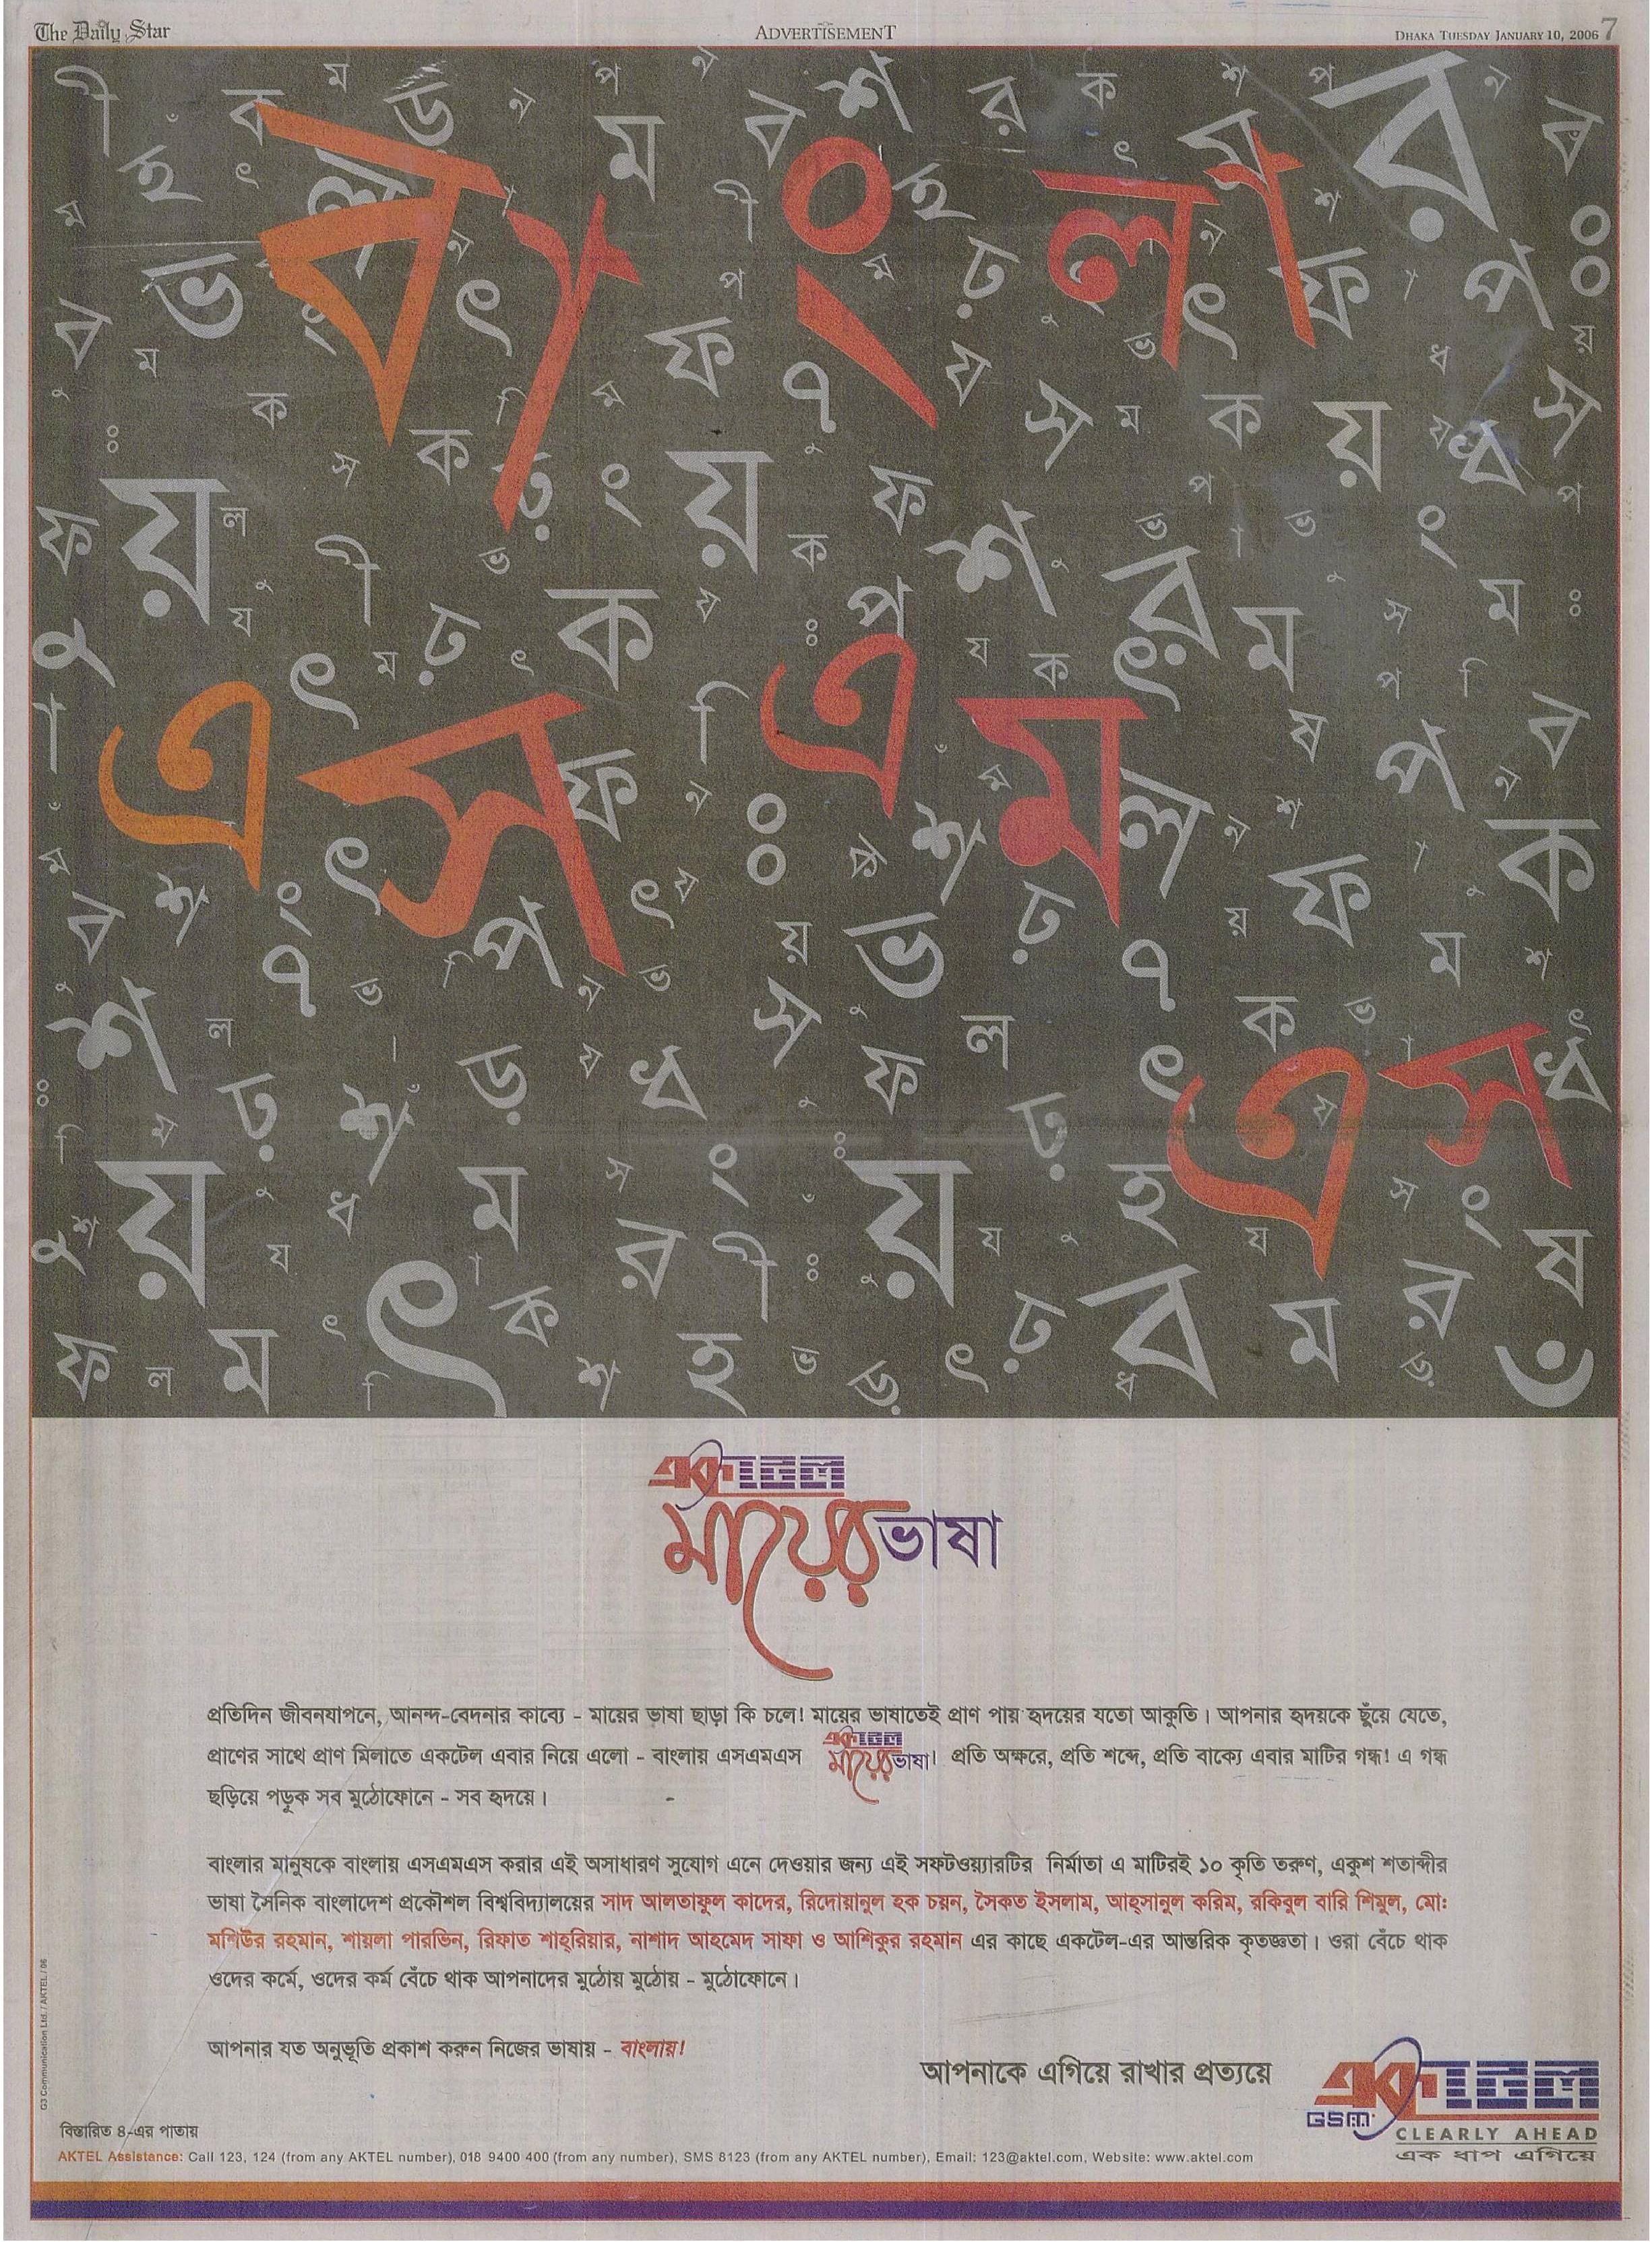 The Daily Star
ADVERTISEMENT
DHAKA TUESDAY JANUARY 10, 2006 7
বাংলা
এস এম
এস
একটেল
মায়ের ভাষা
প্রতিদিন জীবনযাপনে, আনন্দ-বেদনার কাব্যে - মায়ের ভাষা ছাড়া কি চলে! মায়ের ভাষাতেই প্রাণ পায় হৃদয়ের যতো আকুতি। আপনার হৃদয়কে ছুঁয়ে যেতে,
প্রাণের সাথে প্রাণ মিলাতে একটেল এবার নিয়ে এলো - বাংলায় এসএমএস একটেল মায়ের ভাষা। প্রতি অক্ষরে, প্রতি শব্দে, প্রতি বাক্যে এবার মাটির গন্ধ! এ গন্ধ
ছড়িয়ে পড়ূক সব মুঠোফোনে - সব হৃদয়ে।
বাংলার মানুষকে বাংলায় এসএমএস করার এই অসাধারণ সুযোগ এনে দেওয়ার জন্য এই সফটওয়্যারটির নির্মাতা এ মাটিরই ১০ কৃতি তরুণ, একুশ শতাব্দীর
ভাষা সৈনিক বাংলাদেশ প্রকৌশল বিশ্ববিদ্যালয়ের সাদ আলতাফুল কাদের, রিদোয়ানুল হক চয়ন, সৈকত ইসলাম, আহ্‌সানুল করিম, রকিবুল বারি শিমুল, মো:
মশিউর রহমান, শায়লা পারভিন, রিফাত শাহ্‌রিয়ার, নাশাদ আহমেদ সাফা ও আশিকুর রহমান এর কাছে একটেল-এর আন্তরিক কৃতজ্ঞতা। ওরা বেঁচে থাক
ওদের কর্মে, ওদের কর্ম বেঁচে থাক আপনাদের মুঠোয় মুঠোয় - মুঠোফোনে।
আপনার যত অনুভূতি প্রকাশ করুন নিজের ভাষায় - বাংলায়!
আপনাকে এগিয়ে রাখার প্রত্যয়ে
একটেল
GSM
CLEARLY AHEAD
এক ধাপ এগিয়ে
বিস্তারিত ৪-এর পাতায়
AKTEL Assistance: Call 123, 124 (from any AKTEL number), 018 9400 400 (from any number), SMS 8123 (from any AKTEL number), Email: 123@aktel.com, Website: www.aktel.com
G3 Communication Ltd. / AKTEL / 06